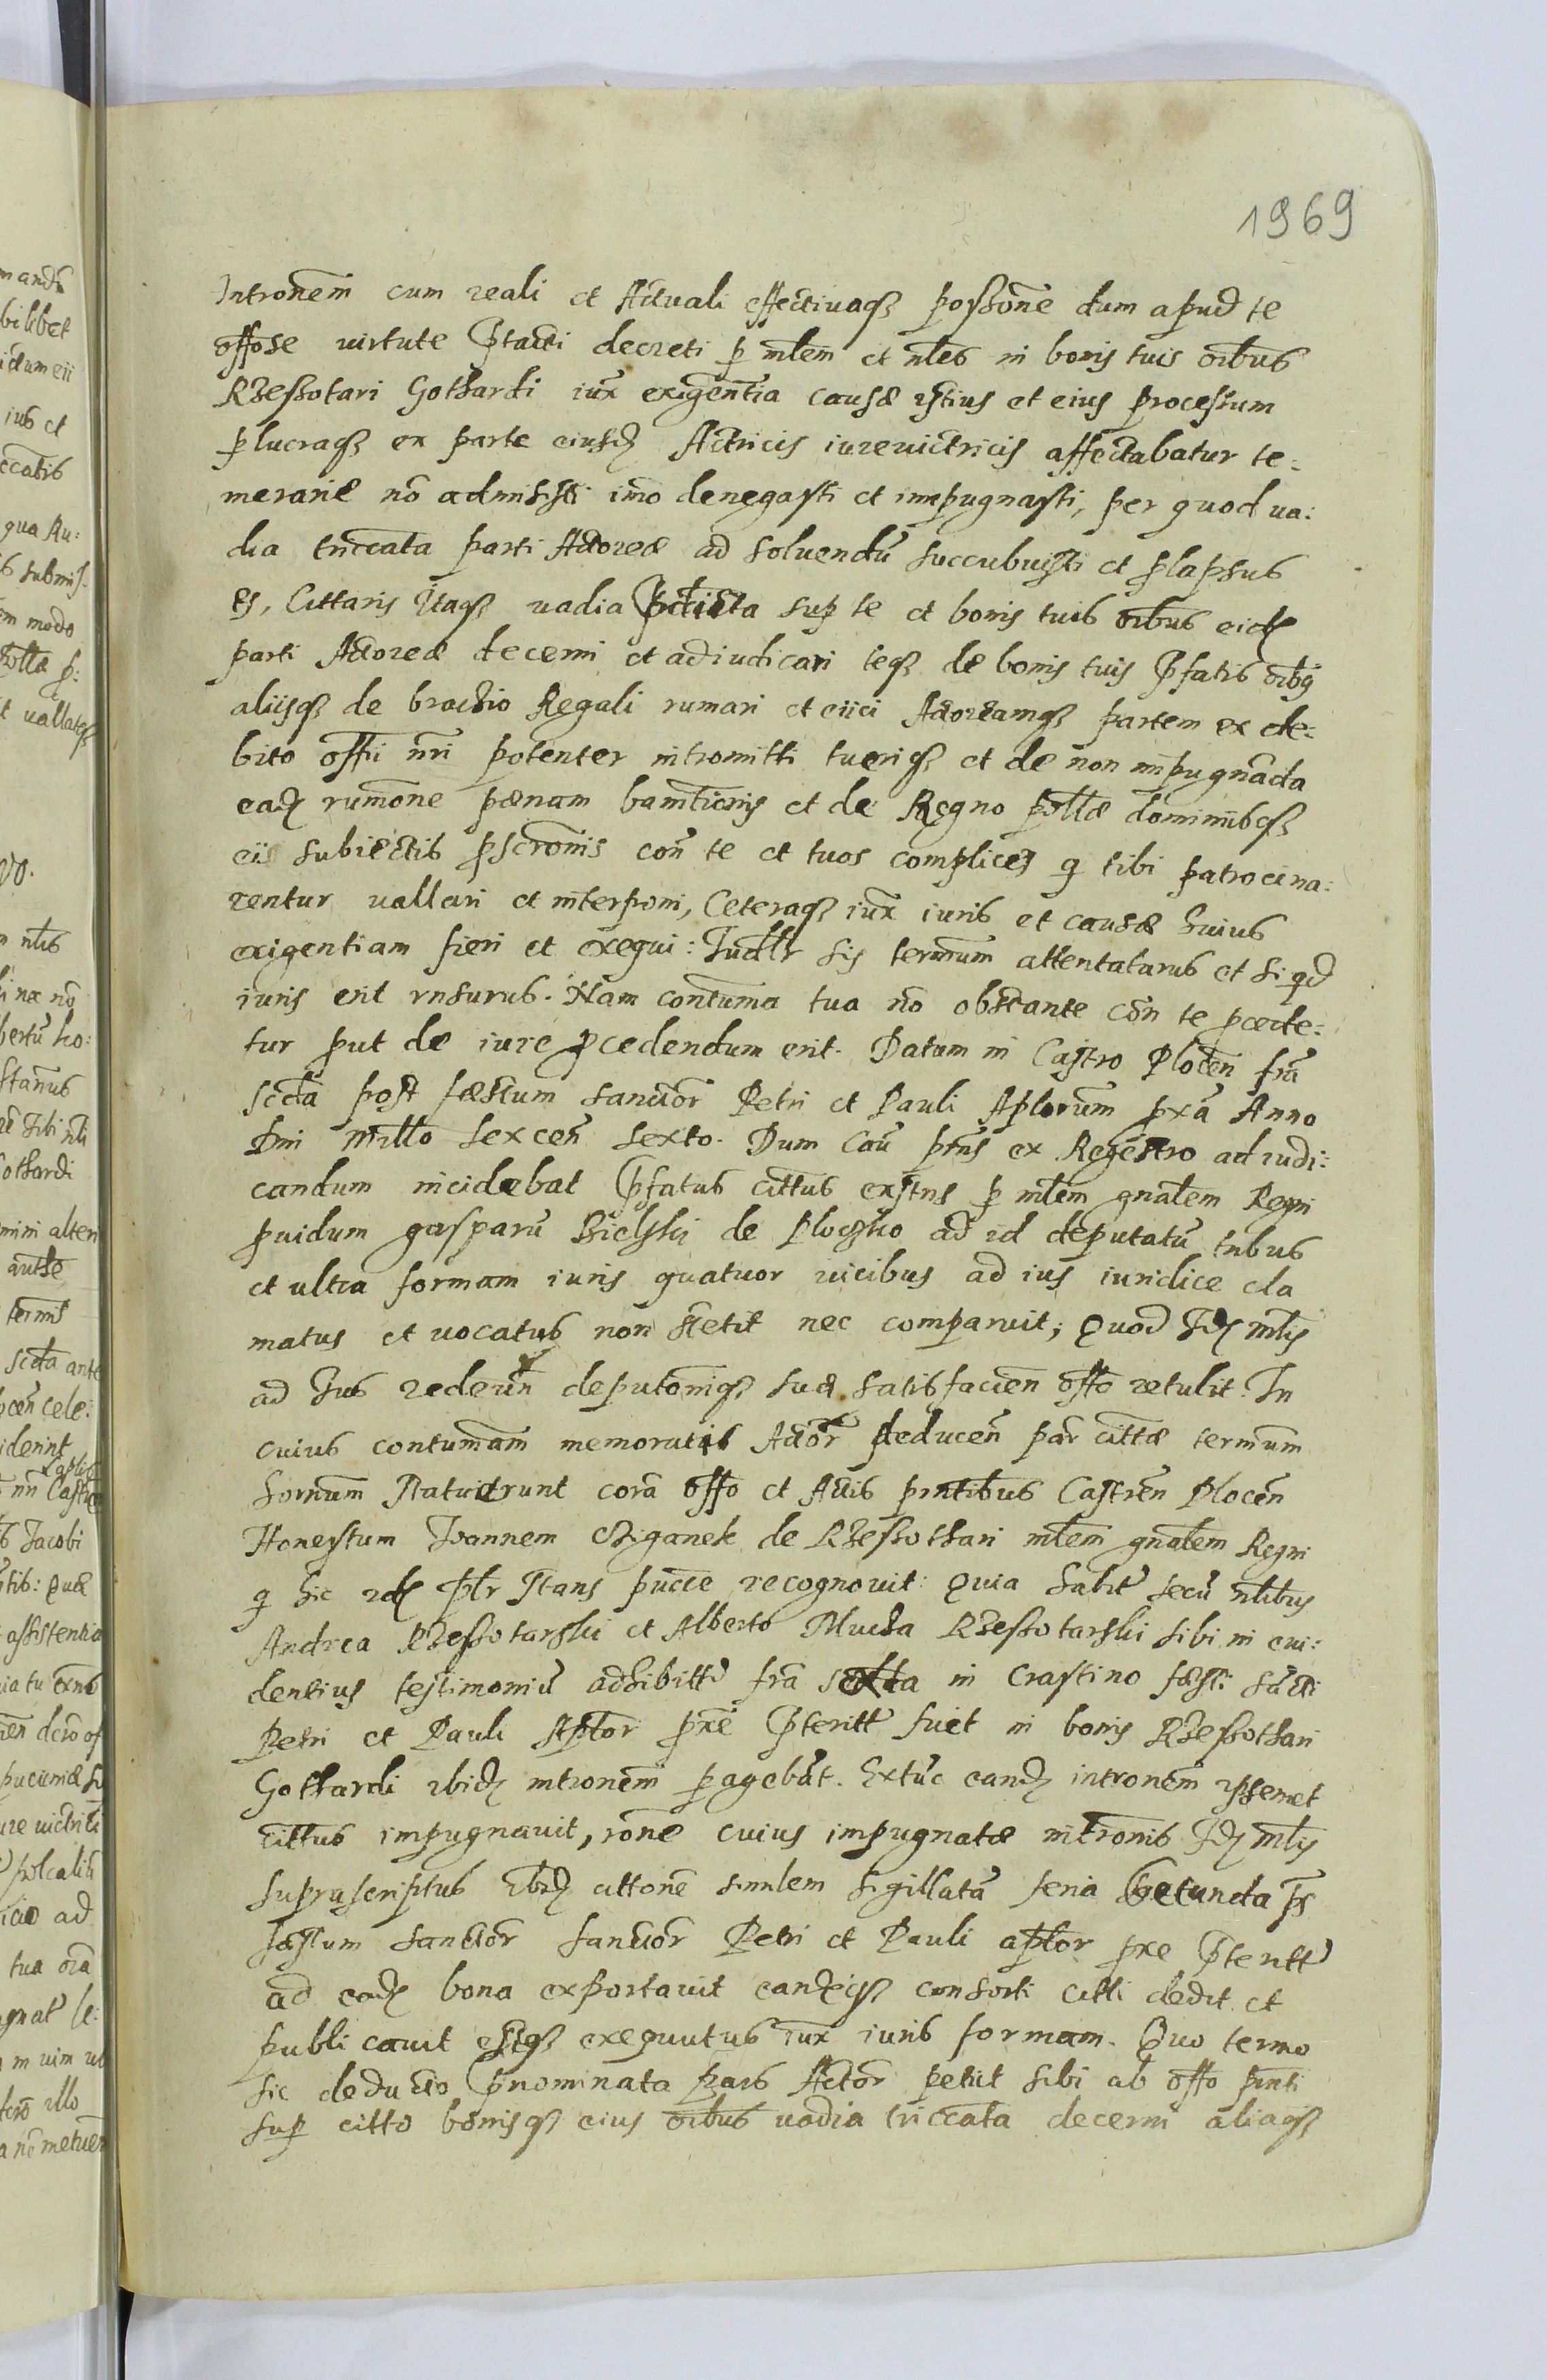 1969
Intronem cum reali et Actuali effectivaq; possone dum apud te
offose virtute ptacti decreti p mlem et nles in bonis tuis oibus
Rzessotari Gothardi iux exigentia causæ istius et eius processum
p lucraq; ex parte eiusd Actricis iurevictricis affectabatur te:
merarie no admisisti imo denegasti et impugnasti, per quod va:
dia triccata parti Actoreæ ad solvendu succubuisti et plapsus
es, Cittaris Itaq; vadia sup te et bonis tuis oibus eid
parti Actoreæ decerni et adiudicari teq; de bonis tuis pfatis oibq
aliisq; de brachio Regali rumari et eiici Actoreamq; partem ex de:
bito offii nri potenter intromitti tueriq; et de non impugnacta
ead rumone pænam bamtionis et de Regno pollæ dominiisq;
eii subiectis pscronis con te et tuos complices q tibi patrocina:
rentur vallari et interponi, Ceteraq; iux iuris et causæ huius
exigentiam fieri et exequi: Iudllr sis termum attentatarus et si qd
iuris erit rnsurus. Nam contuma tua no obstante con te pcede:
tur put de iure pcedendum erit. Datum in Castro Plocen fra
scda post fæstum sanctor Petri et Pauli Aplorum pxa Anno
Dni Millo sexcen sexto. Dum Cau pns ex Regestro ad iudi:
candum incidebat pfatus cittus exstns p mlem gnalem Regni
pvidum gasparu Bielski de Ploczko ad id deputatu tribus
et ultra formam iuris quatuor vicibus ad ius iuridice cla
matus et vocatus non stetit nec comparuit; Quod Id mlis
ad Ius redeun deputoniq; suæ satisfacien offo retulit. In
cuius contumam memoratis Actor deducen par cittæ termum
hornum statuerunt cora offo et Actis pntibus Castren Plocen
Honestum Ioannem Cziganek de Rzessothari mlem gnalem Regni
q hic id ptr stans pucce recognovit: Quia habit secu nlibus
Andrea Rzessotarski et Alberto Mucha Rzessotarski sibi in evi:
dentius testimoniu adhibitt fra in Crastino fæsti sacti
Petri et Pauli Aptor pxe pteritt fuit in bonis Rzessothari
Gothardi ibid intronem pagebat. Extuc eand intronem ipsemet
cittus impugnavit, rone cuius impugnatæ intronis Id mlis
suprascriptus cittone similem sigillata feria secunda ps
fæstum sanctor sanctor Petri et Pauli aptor pxe pteritt
ad ead bona exportavit eandq; consorti citti dedit et
publicavit estq; exequutus iux iuris formam. Quo termo
sic deducto pnominata pars Actor petiit sibi ab offo pnti
sup citto bonisq; eius oibus vadia triccata decerni aliaq;